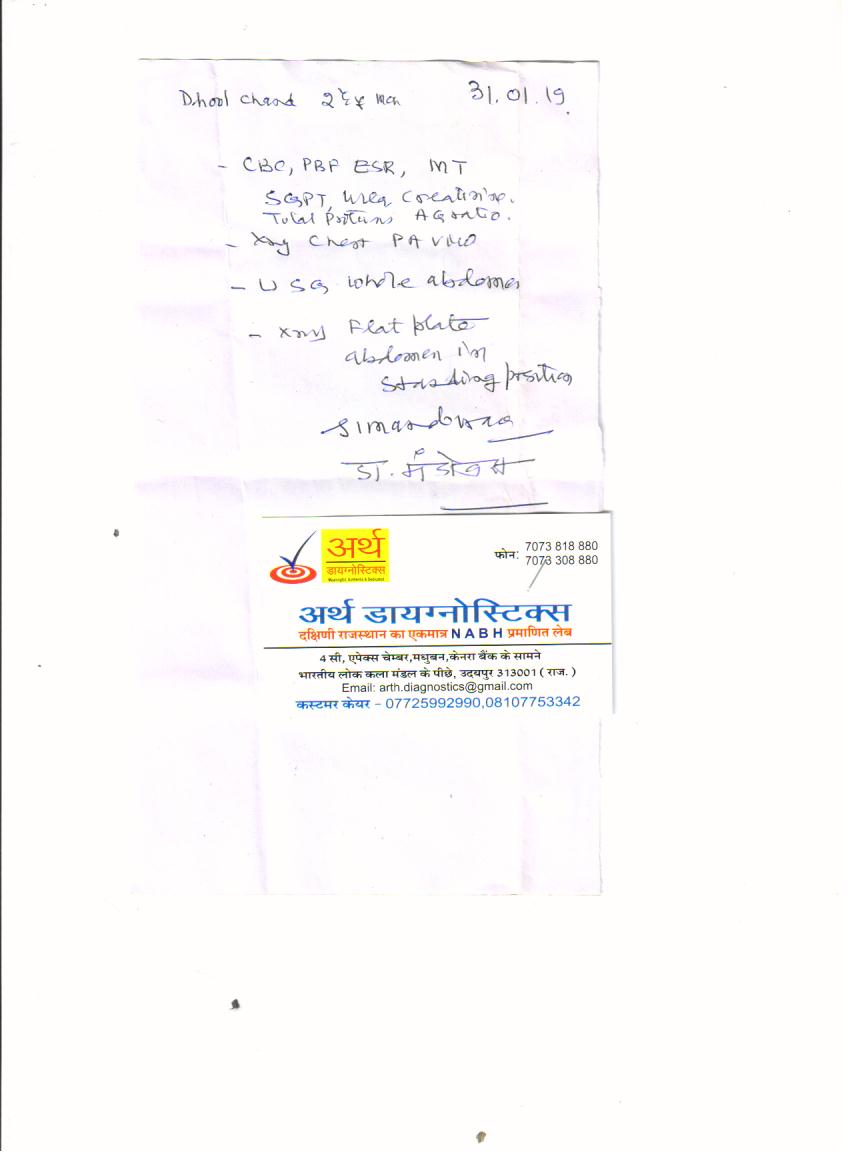 Dhool Chand 31.01.19.
- CBC, PBF ESR, MT
SGPT, Urea Creatinine.
Total Proteins AG ratio.
- Xray Chest PA View
- USG whole abdomen
- Xray Flat plate
abdomen in
standing position
डा.
अर्थ
डायग्नोस्टिक्स
फोन: 7073 818 880
7073 308 880
अर्थ डायग्नोस्टिक्स
दक्षिणी राजस्थान का एकमात्र NABH प्रमाणित लेब
4 सी, एपेक्स चेम्बर,मधुबन,केनरा बैंक के सामने
भारतीय लोक कला मंडल के पीछे, उदयपुर 313001 ( राज. )
Email: arth.diagnostics@gmail.com
कस्टमर केयर - 07725992990,08107753342